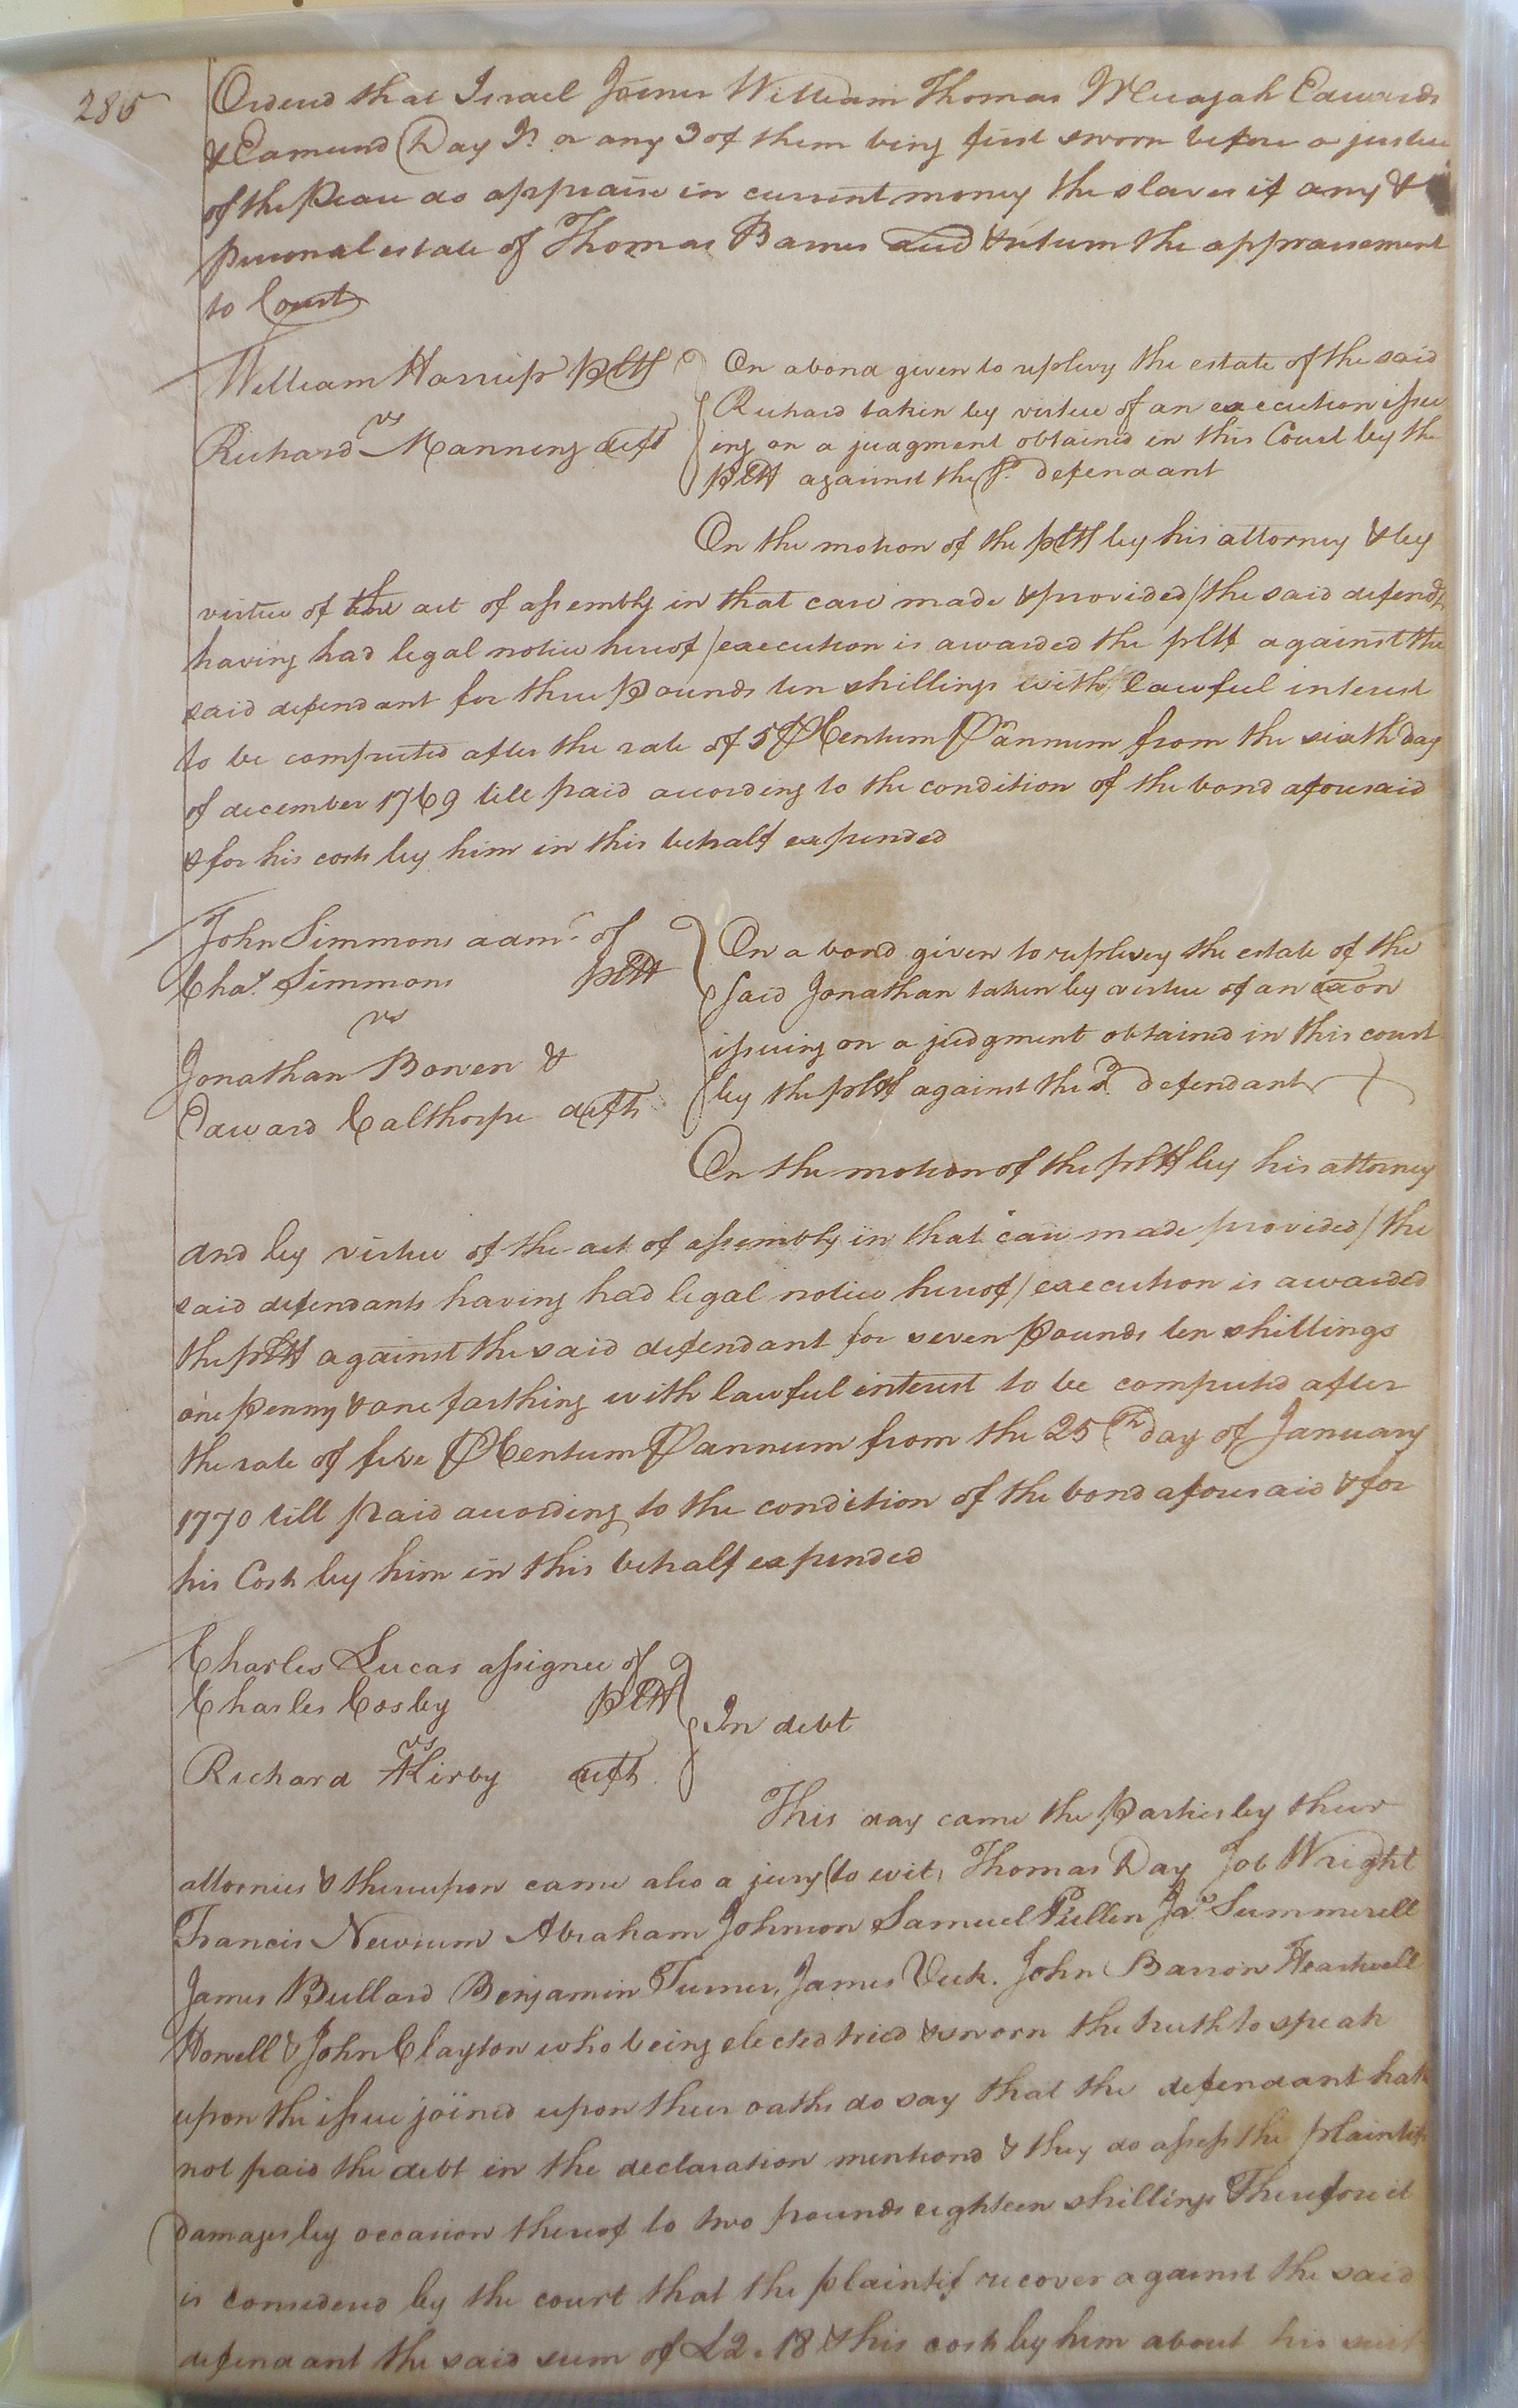 285
Orderd that Israel Joiner William Thomas Micajah Edwards
& Edmund Day Jr. or any 3 of them being first sworn before a justice
of the Peace do appraise in current money the slaves if any &
personal estate of Thomas Barnes decd & return the appraisement
to Court
William Harriss pltf
vs
Richard Manning deft
On a bond given to replevy the estate of the said
Richard taken by virtue of an execution issu
ing on a judgment obtained in this Court by the
pltf against the sd. defendant
On the motion of the pltf by his attorney & by
virtue of the act of assembly in that case made & provided / the said defendt
having had legal notice hereof / execution is awarded the pltf against the
said defendant for three Pounds ten shillings with lawful interest
to be computed after the rate of 5 P Centum P annum from the sixth day
of december 1769 till paid according to the condition of the bond aforesaid
& for his costs by him in this behalf expended
John Simmons admr. of
Chas. Simmons pltf
vs
Jonathan Bowen &
Edward Calthorpe defts
On a bond given to replevey the estate of the
said Jonathan taken by virtue of an exon
issuing on a judgment obtained in this court
by the pltf against the sd. defendant
On the motion of the pltf by his attorney
and by virtue of the act of assembly in that case made provided / the
said defendants having had legal notice hereof / execution is awarded
the pltf against the said defendant for seven Pounds ten shillings
one penny & one farthing with lawful interest to be computed after
the rate of five P Centum P annum from the 25th day of January
1770 till paid according to the condition of the bond aforesaid & for
his Costs by him in this behalf expended
Charles Lucas assignee of
Charles Cosby pltf
vs
Richard Kirby deft
In debt
This day came the Parties by their
attornies & thereupon came also a jury (to wit) Thomas Day Job Wright
Francis Newsum Abraham Johnson Samuel Pullen Jas. Summerell
James Bullard Benjamin Turner, James Vick. John Barrow Heartwell
Howell & John Clayton who being elected tried & sworn the truth to speak
upon the issue joined upon their oaths do say that the defendant hath
not paid the debt in the declaration mentiond & they do assess the plaintifs
damages by occasion thereof to two pounds eighteen shillings Therefore it
is considerd by the court that the plaintif recover against the said
defendant the said sum of £2.18 & his costs by him about his suit